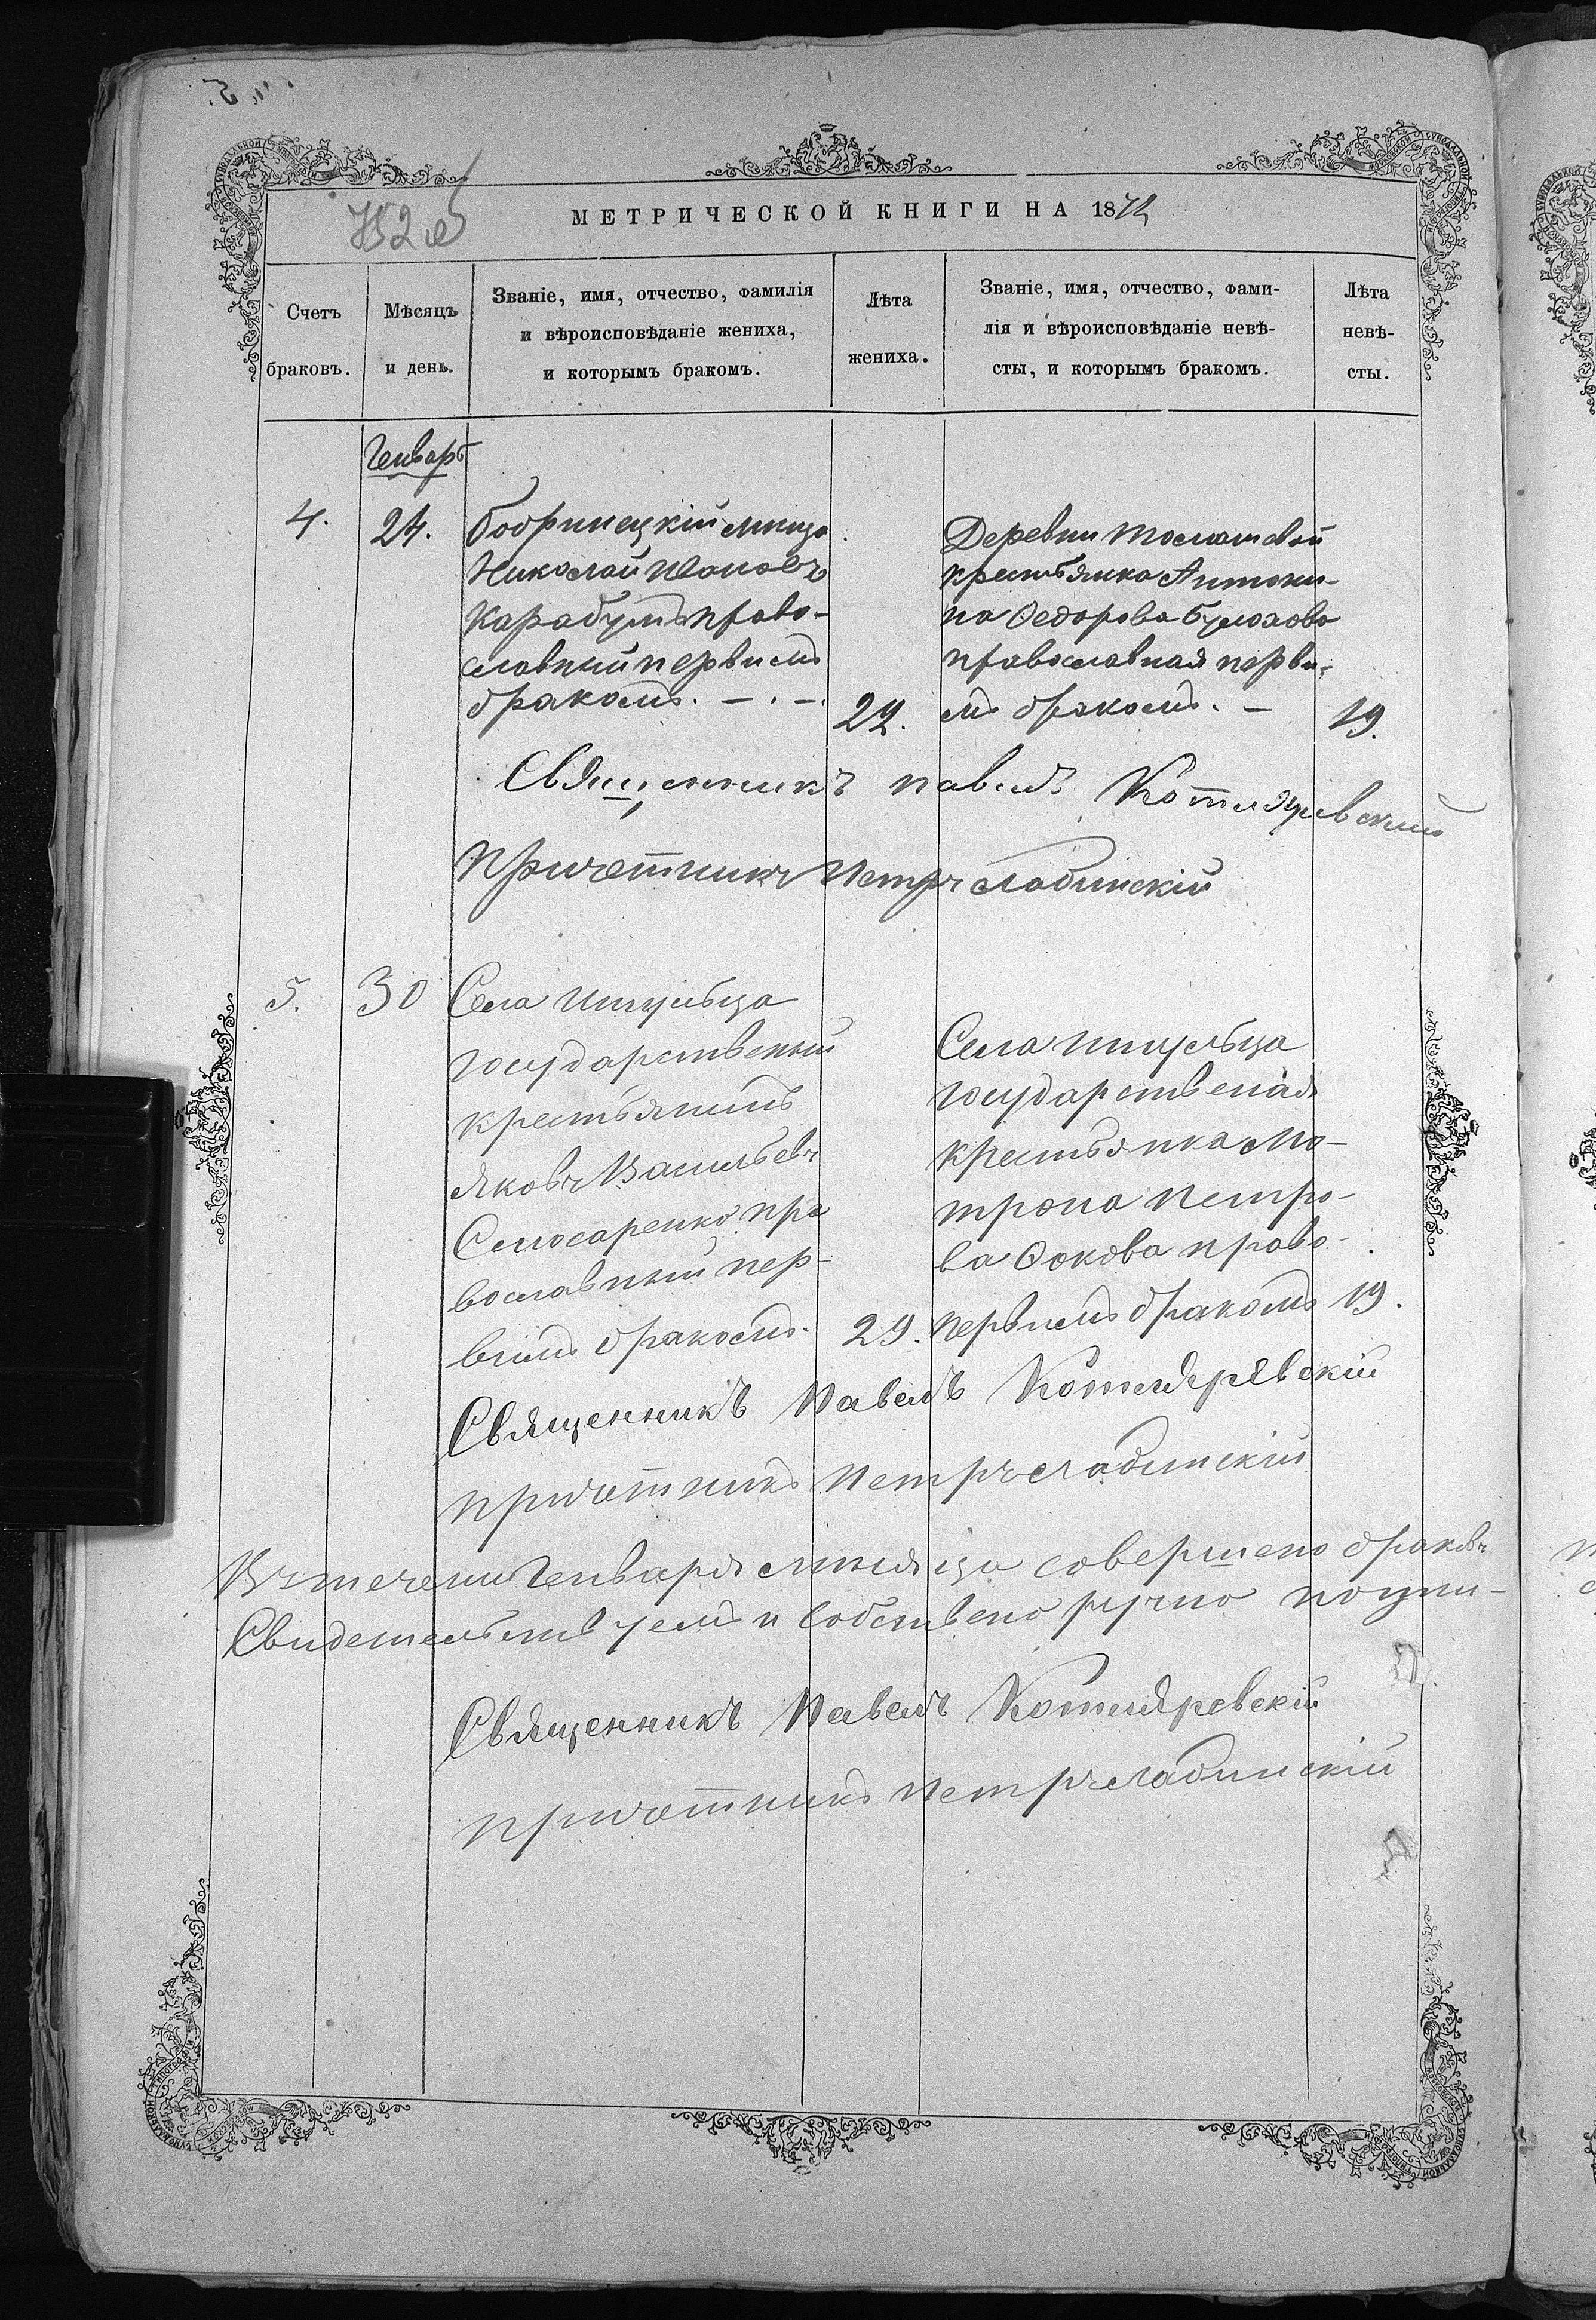 752 об
МЕТРИЧЕСКОЙ КНИГИ НА 1872
Счетъ браковъ.
Мѣсяцъ и день.
Званіе, имя, отчество, фамилія
и вѣроисповѣданіе жениха,
и которымъ бракомъ.
Лѣта жениха.
Званіе, имя, отчество, фами-
лія и вѣроисповѣданіе невѣ-
сты, и которымъ бракомъ.
Лѣта невѣ-
сты.
Генварь
4.
24.
Бобринецкій
Николай Ивановъ
Карабутъ право-
славный первимъ
бракомъ. — . —.
22.
Деревни
крестьянка Антони-
на Федорова
православная перви-
мъ бракомъ. —
19.
Священникъ Павелъ Котляревский
Причетникъ Петръ Лабинскій
5.
30
Села
государственый
крестьянинъ
Яковъ Васильевъ
Слюсаренко пра
вославный пер-
вимъ бракомъ.
29.
Села
государственая
крестьянка Мо-
трона Петро-
ва право-
первимъ бракомъ
19.
Священникъ Павелъ Котляревскій
Причетникъ Петръ Лабинскій
Въ течени Генваря мисяца совершено браковъ
Свидетельствуемъ и собствено ручно
Священникъ Павелъ Котляревскій
Причетникъ Петръ Лабинскій